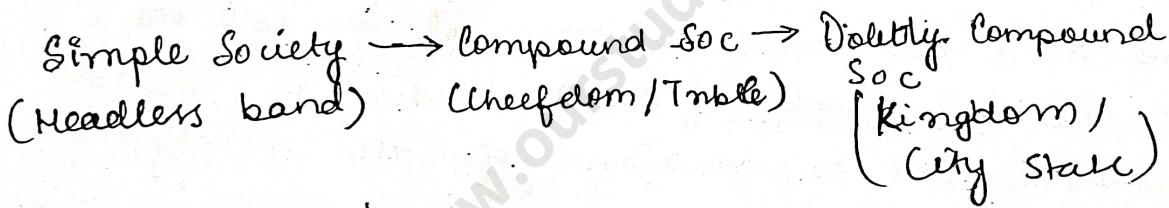 Simple Society → Compound Soc → Doubly Compound Soc
(Headless band) (Cheefdom / Tribe) (Kingdom / City State)
www.ourstud